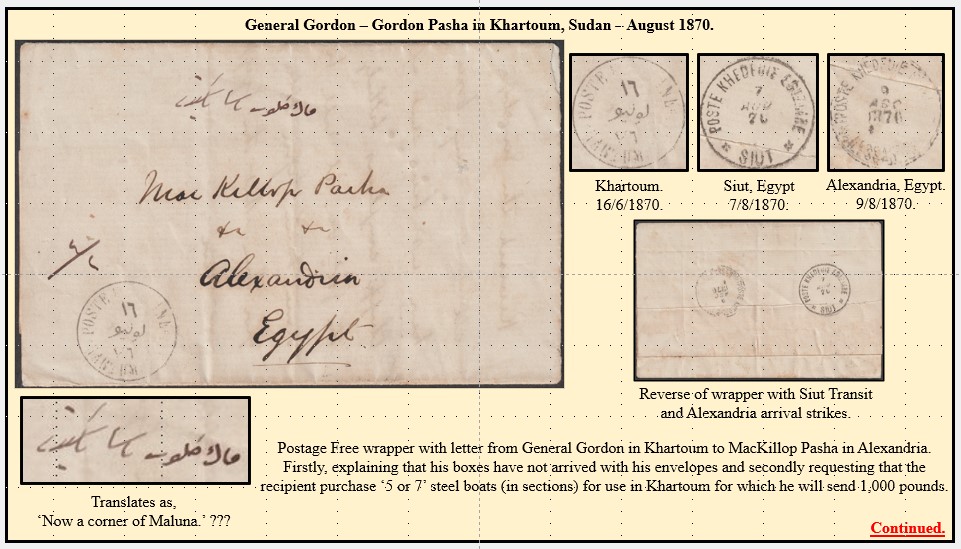 General Gordon – Gordon Pasha in Khartoum, Sudan – August 1870.
Mac Killop Pasha
Alexandria
Egypt
POSTE
١٦
يونيو
POSTE
١٦
يونيو
POSTE KHEDEUIE EGIZIANE
7
AGO
76
SIUT
POSTE KHEDEUIE
9
AGO
1876
Khartoum.
16/6/1870.
Siut, Egypt
7/8/1870.
Alexandria, Egypt.
9/8/1870.
SIUT
Reverse of wrapper with Siut Transit
and Alexandria arrival strikes.
ماك كلوب باشا
Translates as,
‘Now a corner of Maluna.’ ???
Postage Free wrapper with letter from General Gordon in Khartoum to MacKillop Pasha in Alexandria.
Firstly, explaining that his boxes have not arrived with his envelopes and secondly requesting that the
recipient purchase ‘5 or 7’ steel boats (in sections) for use in Khartoum for which he will send 1,000 pounds.
Continued.